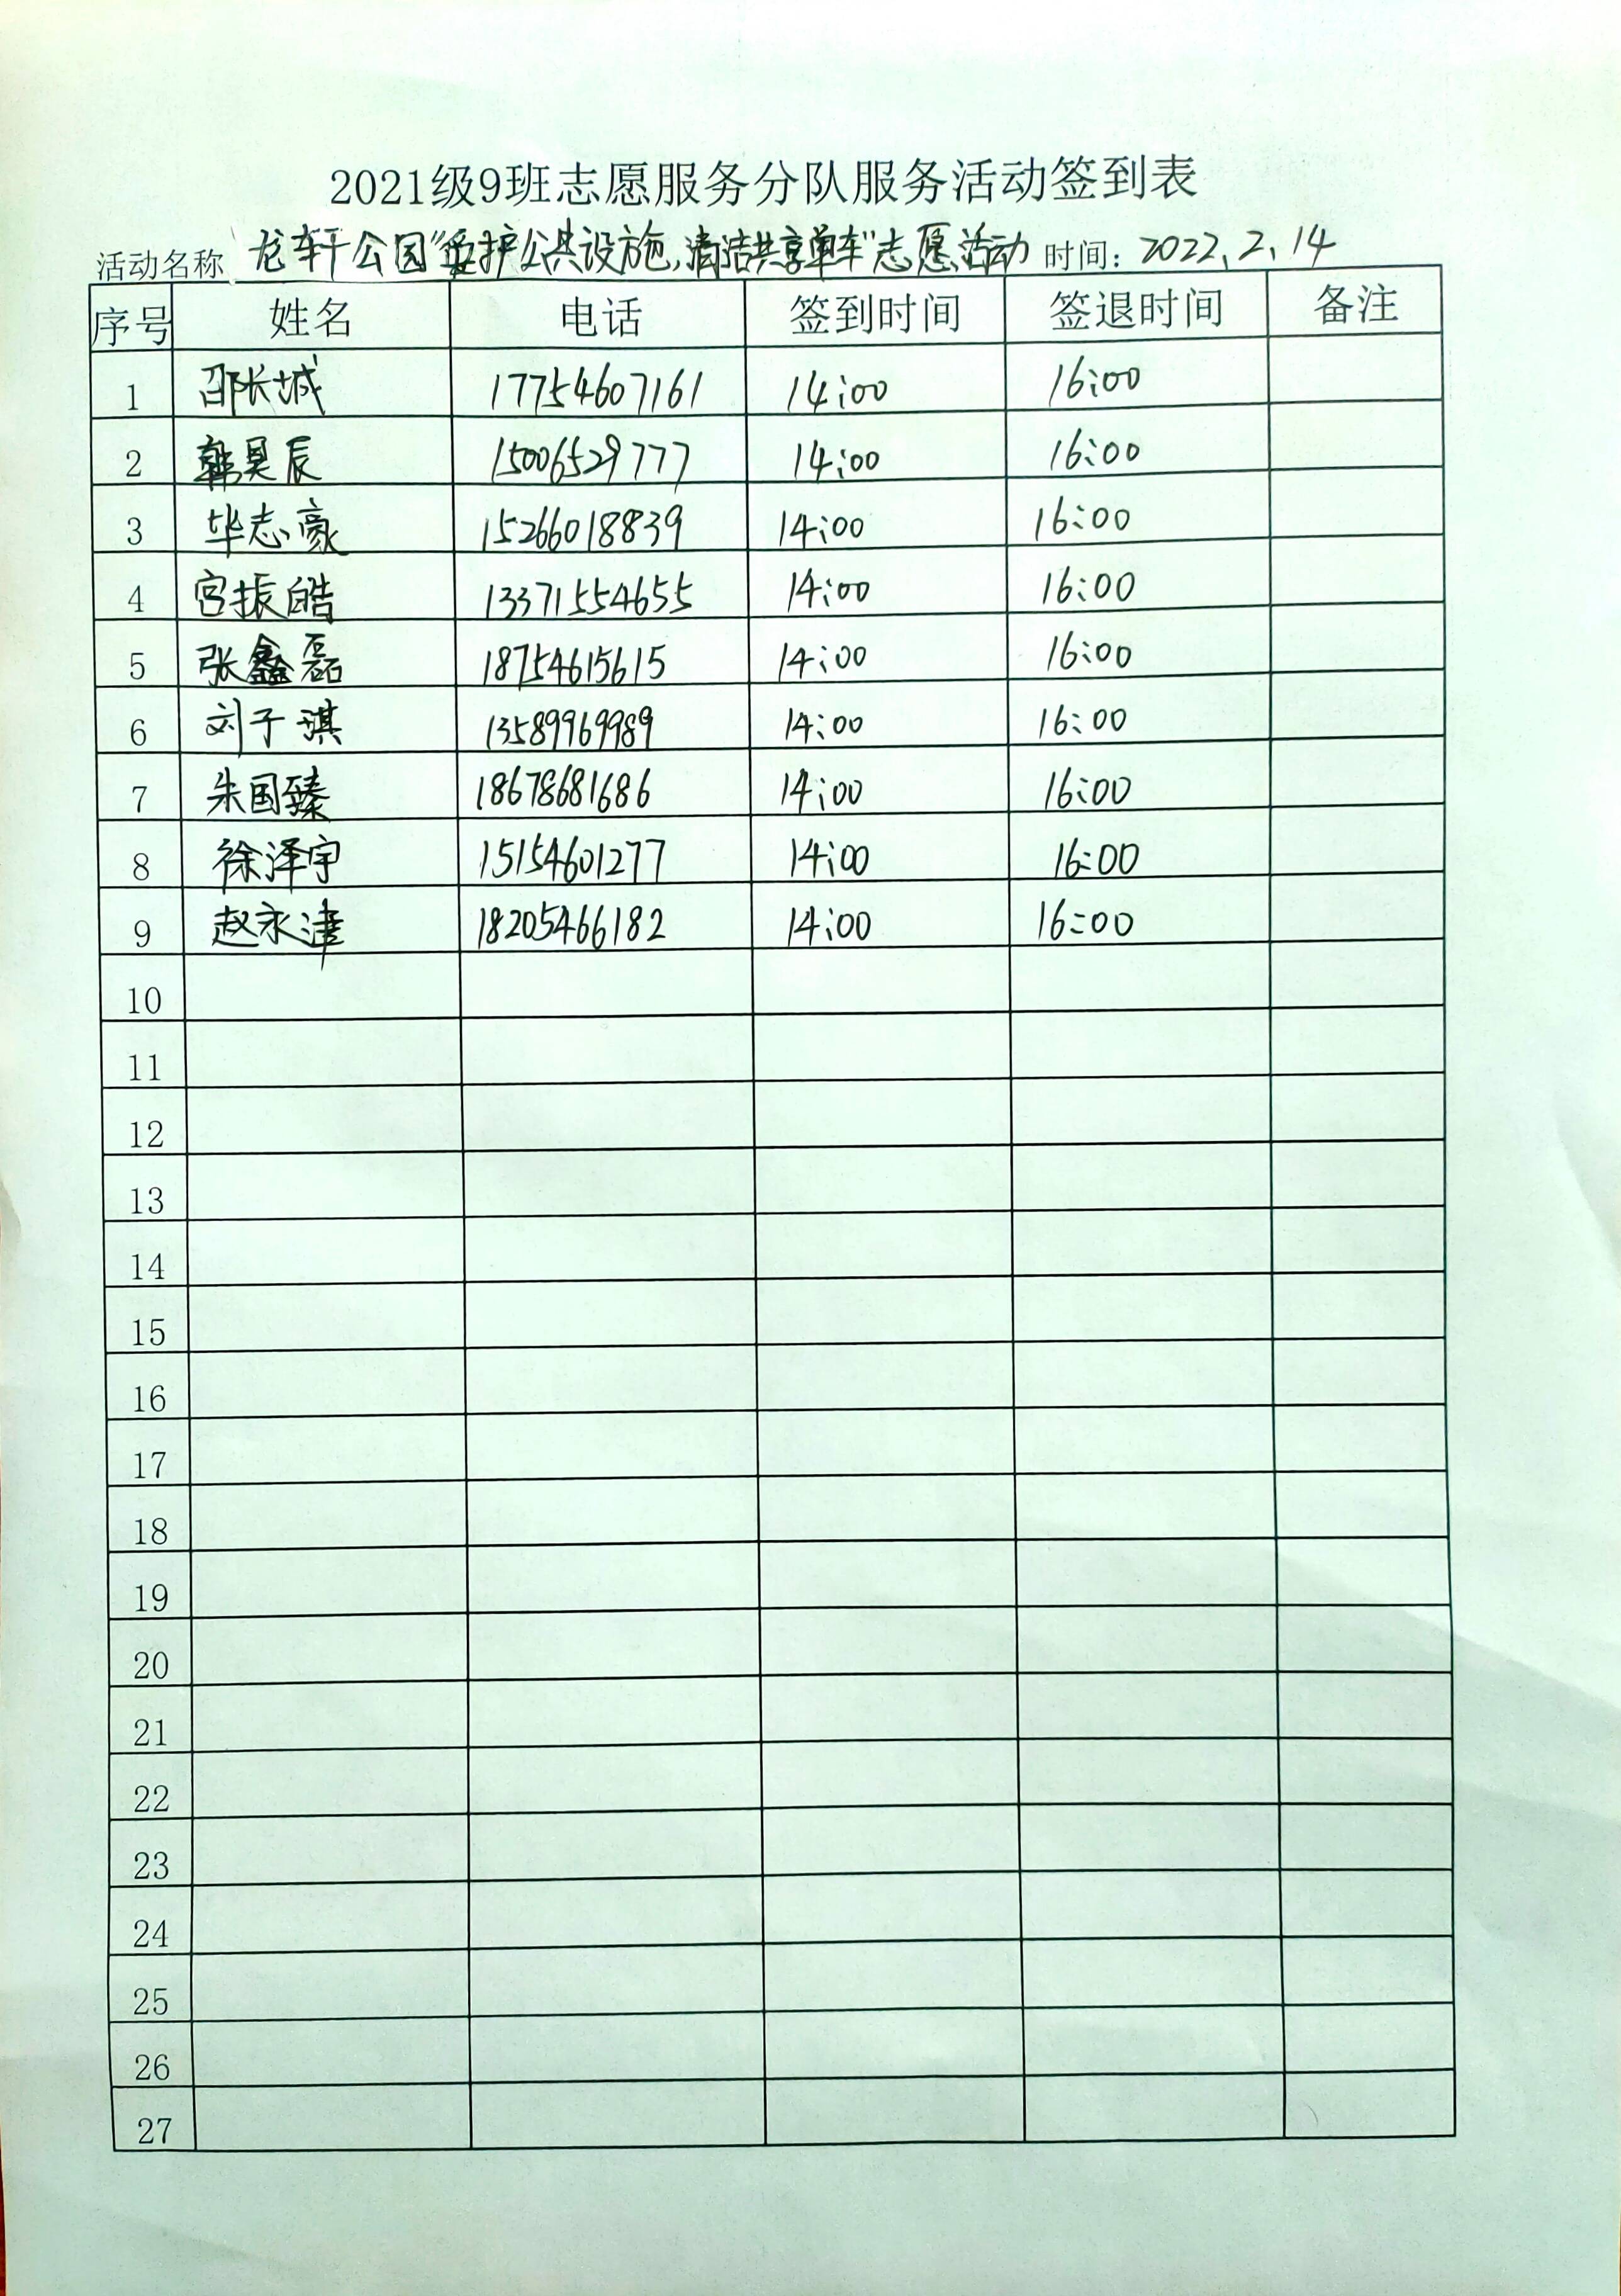 2021级9班志愿服务分队服务活动签到表
活动名称 龙轩公园"爱护公共设施,清洁共享单车"志愿活动 时间: 2022.2.14
序号 姓名 电话 签到时间 签退时间 备注
1 邵长城 17754607161 14:00 16:00
2 韩昊辰 15006529777 14:00 16:00
3 毕志豪 15266018839 14:00 16:00
4 宫振皓 13371554655 14:00 16:00
5 张鑫磊 18754615615 14:00 16:00
6 刘子淇 13589969989 14:00 16:00
7 朱国臻 18678681686 14:00 16:00
8 徐泽宇 15154601277 14:00 16:00
9 赵永津 18205466182 14:00 16:00
10
11
12
13
14
15
16
17
18
19
20
21
22
23
24
25
26
27